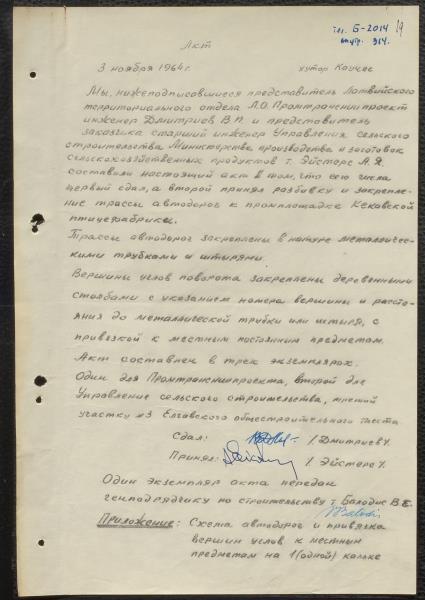 тел. Б-2014
внутр. 314.
19
Акт
3 ноября 1964г.
хутор Каучас
Мы, нижеподписавшиеся представитель Латвийского
территориального отдела Л.О. Промтрансниипроект
инженер Дмитриев В.П. и представитель
заказчика старший инженер Управления сельского
строительства Министерства производства и заготовок
сельскохозяйственных продуктов т. Эйстерс А.Я.
составили настоящий акт в том, что сего числа
первый сдал, а второй принял разбивку и закрепле-
ние трассы автодорог к промплощадке Кекавской
птицефабрики.
Трассы автодорог закреплены в натуре металличес-
кими трубками и штырями.
Вершины углов поворота закреплены деревянными
столбами с указанием номера вершины и рассто-
яния до металлической трубки или штыря, с
привязкой к местным постоянным предметам.
Акт составлен в трех экземплярах.
Один для Промтрансниипроекта, второй для
Управления сельского строительства, третий
участку №3 Елгавского общестроительного треста
Сдал: /Дмитриев/.
Принял: /Эйстерс/.
Один экземпляр акта передан
генподрядчику по строительству т. Балодис В.Е.
Приложение: Схема автодорог и привязка
вершин углов к местным
предметам на 1(одной) кальке